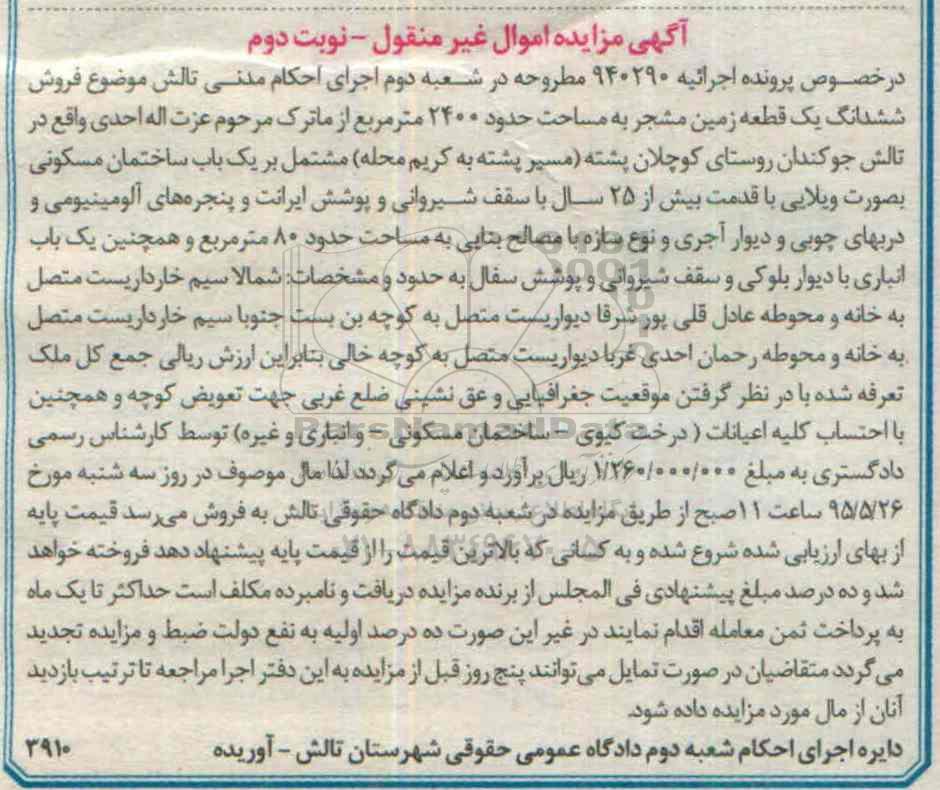 آگهی مزایده اموال غیر منقول - نوبت دوم
درخصوص پرونده اجرائیه ۹۴۰۲۹۰ مطروحه در شعبه دوم اجرای احکام مدنی تالش موضوع فروش
ششدانگ یک قطعه زمین مشجر به مساحت حدود ۲۴۰۰ مترمربع از ماترک مرحوم عزت اله احدی واقع در
تالش جوکندان روستای کوچلان پشته (مسیر پشته به کریم محله) مشتمل بر یک باب ساختمان مسکونی
بصورت ویلایی با قدمت بیش از ۲۵ سال با سقف شیروانی و پوشش ایرانت و پنجره‌های آلومینیومی و
دربهای چوبی و دیوار آجری و نوع سازه با مصالح بنایی به مساحت حدود ۸۰ مترمربع و همچنین یک باب
انباری با دیوار بلوکی و سقف شیروانی و پوشش سفال به حدود و مشخصات: شمالا سیم خارداریست متصل
به خانه و محوطه عادل قلی پور شرقا دیواریست متصل به کوچه بن بست جنوبا سیم خارداریست متصل
به خانه و محوطه رحمان احدی غربا دیواریست متصل به کوچه خالی بنابراین ارزش ریالی جمع کل ملک
تعرفه شده با در نظر گرفتن موقعیت جغرافیایی و عق نشینی ضلع غربی جهت تعویض کوچه و همچنین
با احتساب کلیه اعیانات ( درخت کیوی - ساختمان مسکونی - و انباری و غیره) توسط کارشناس رسمی
دادگستری به مبلغ ۱/۲۶۰/۰۰۰/۰۰۰ ریال برآورد و اعلام می گردد لذا مال موصوف در روز سه شنبه مورخ
۹۵/۵/۲۶ ساعت ۱۱صبح از طریق مزایده در شعبه دوم دادگاه حقوقی تالش به فروش می‌رسد قیمت پایه
از بهای ارزیابی شده شروع شده و به کسانی که بالاترین قیمت را از قیمت پایه پیشنهاد دهد فروخته خواهد
شد و ده درصد مبلغ پیشنهادی فی المجلس از برنده مزایده دریافت و نامبرده مکلف است حداکثر تا یک ماه
به پرداخت ثمن معامله اقدام نمایند در غیر این صورت ده درصد اولیه به نفع دولت ضبط و مزایده تجدید
می گردد متقاضیان در صورت تمایل می‌توانند پنج روز قبل از مزایده به این دفتر اجرا مراجعه تا ترتیب بازدید
آنان از مال مورد مزایده داده شود.
دایره اجرای احکام شعبه دوم دادگاه عمومی حقوقی شهرستان تالش - آوریده ۳۹۱۰
ParsNamadData